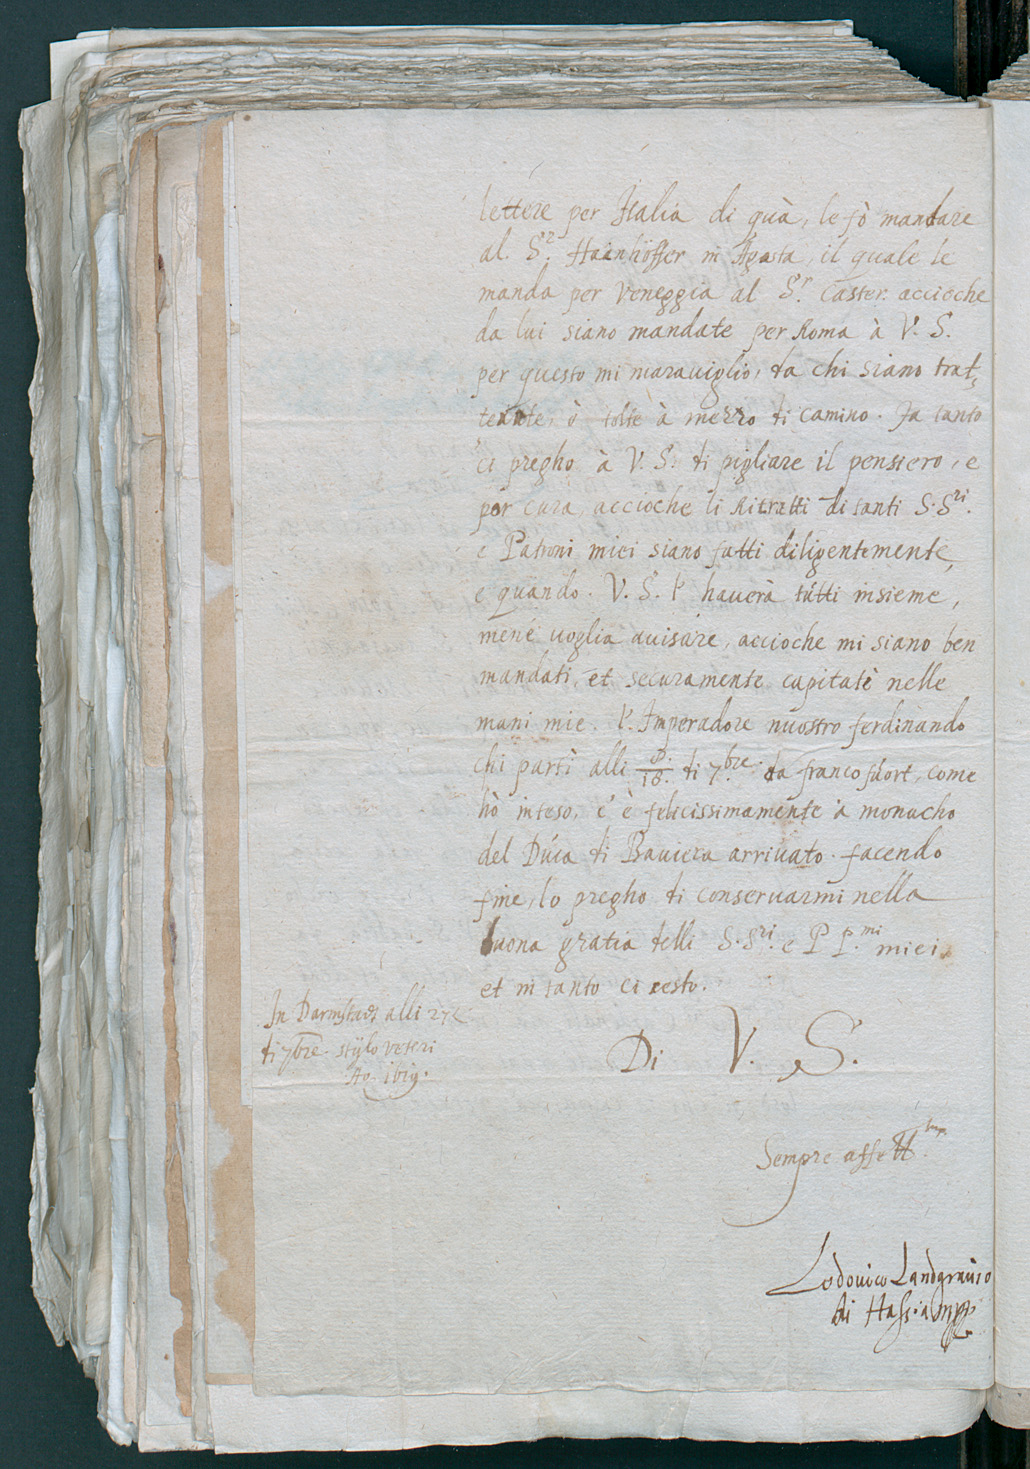 lettere per Italia di quà, le fò mandare
al. S.r Hainhöffer in Agosta, il quale le
manda per Veneggia al S.r Caster. accioche
da lui siano mandate per Roma à V. S.
per questo mi marauiglio, da chi siano trat,
tenute, ò tolte à mezzo di camino. In tanto
ci pregho à V. S. di pigliare il pensiero, e
per cura, accioche li Ritratti di tanti S.Sri.
e Patroni miei siano fatti diligentemente,
e quando. V. S. l' hauerà tutti insieme,
mene uoglia auisare, accioche mi siano ben
mandati, et securamente capitatè nelle
mani mie. l'. Imperadore nuostro ferdinando
chi partì alli 8./18. di 7.bre da francofuort, come
hò inteso, e' è felicissimamente à monacho
del Duca di Bauiera arriuato. facendo
fine, lo pregho di conseruarmi nella
buona gratia delli S.Sri. e P P.mi miei,
et in tanto ci resto.
In Darmstadt alli 27
di 7bre stÿlo veteri
Ao. 1619.
Di V. S.
Sempre affett.mo
Lodouico Landgrauio
di Hassia mpp